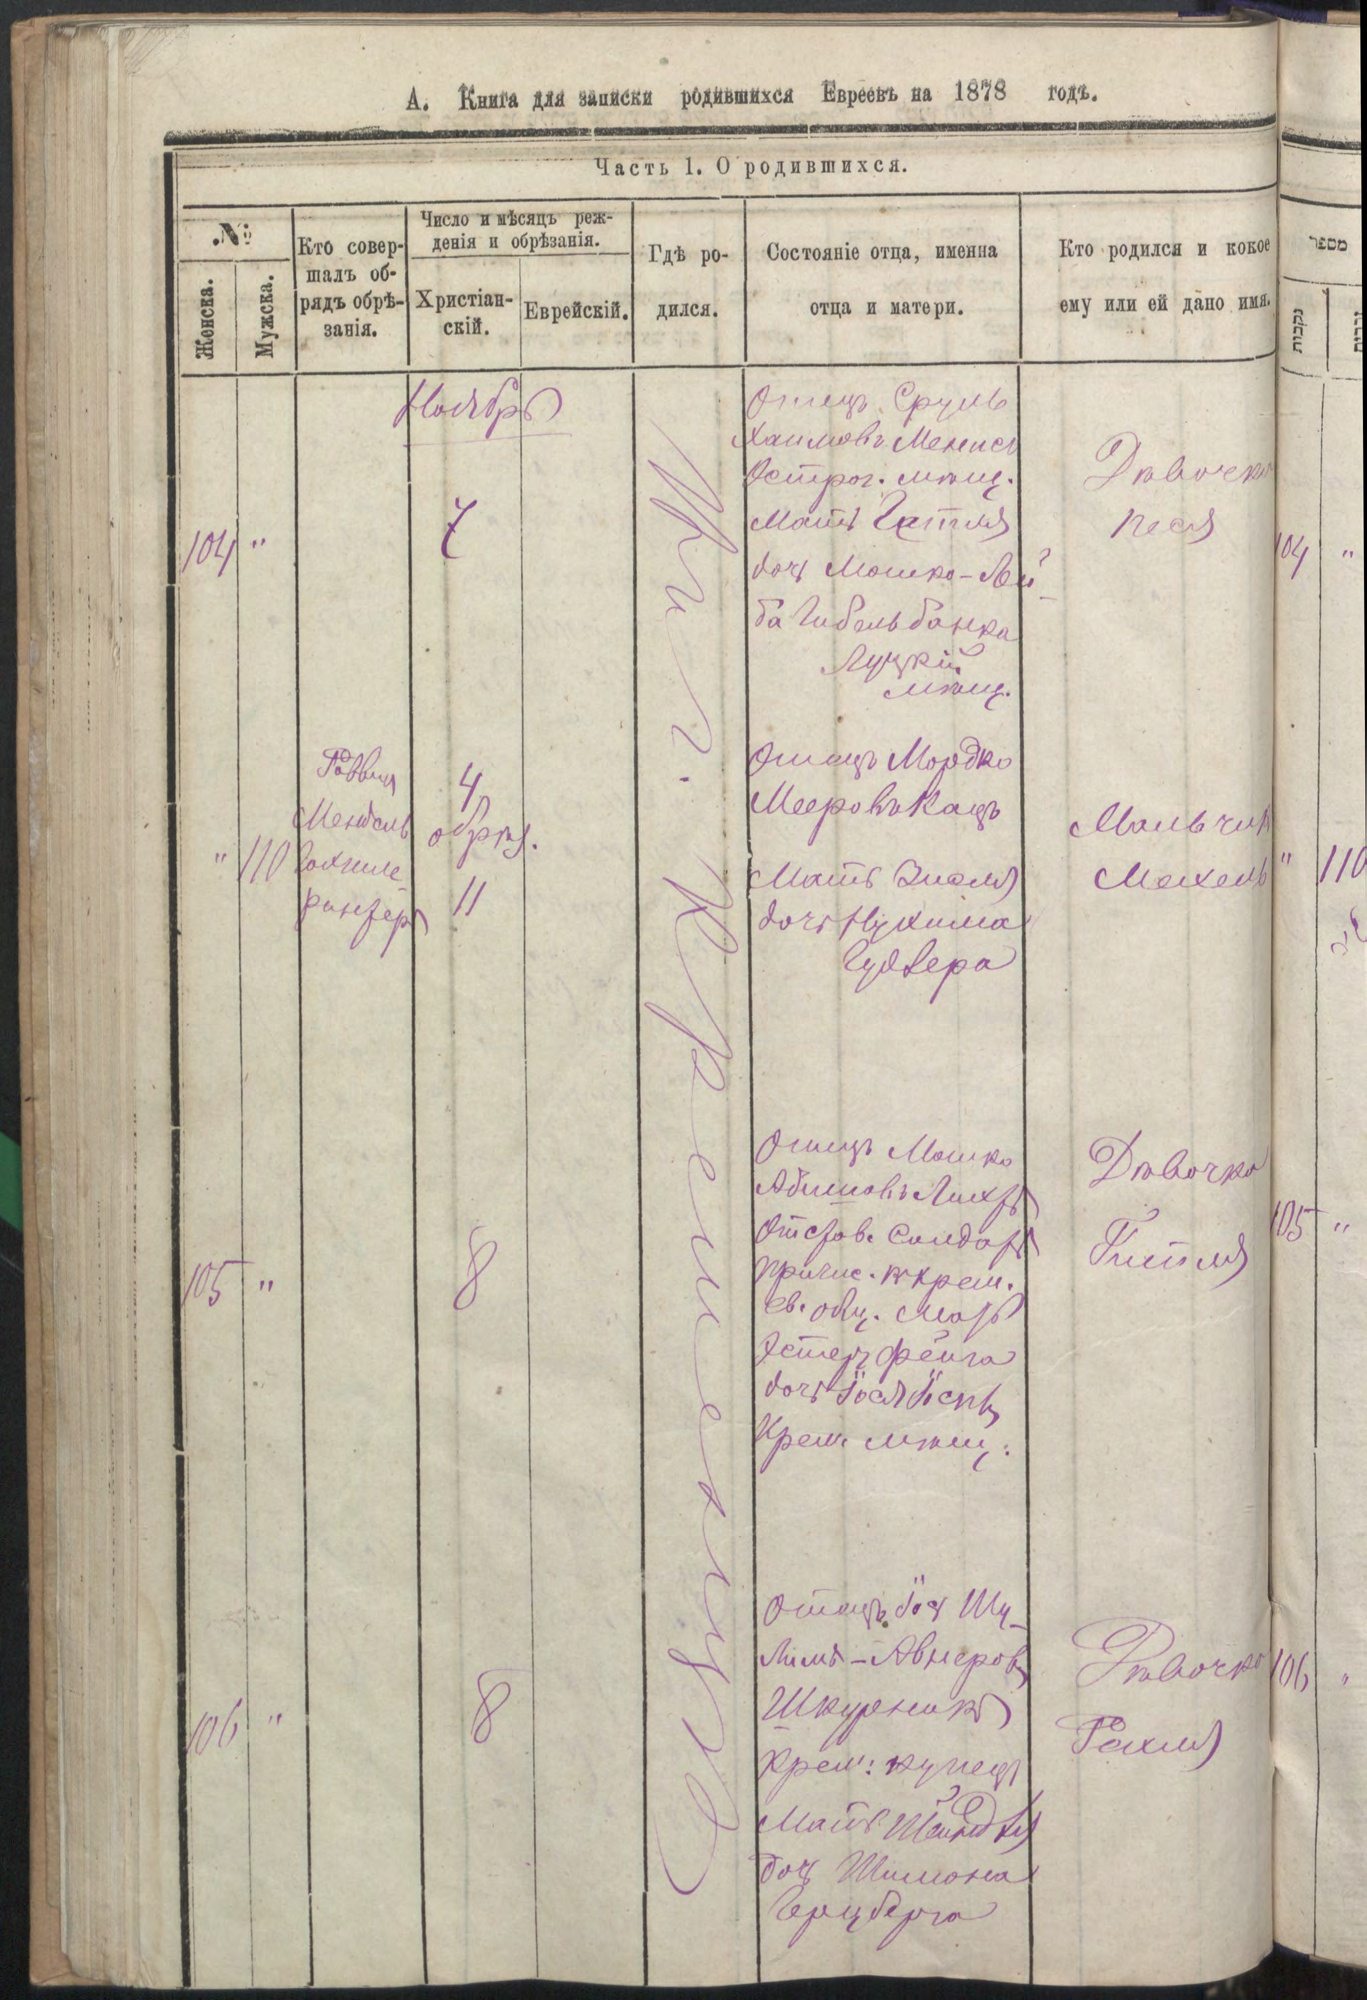 А. Книга для записки родившихся Евреевъ на 1878 годъ.
Часть 1. О родившихся.
№
Женска.
Мужска.
Кто совер-
шалъ об-
рядъ обрѣ-
занія.
Число и мѣсяцъ реж-
денія и обрѣзанія.
Христіан-
скій.
Еврейскій.
Гдѣ ро-
дился.
Состояніе отца, именна
отца и матери.
Кто родился и кокое
ему или ей дано имя.
מספר
נקבות
Ноябрь
Въ г. Кременцѣ
104 "
7
Отецъ Сруль
Хаимовъ Менис
Острог. мѣщ.
Мать Гитля
дочь Мошко-Лей-
ба Гибельбанка
Луцкій
мѣщ.
Дѣвочка
Песя
104 "
" 110
Раввинъ
Мендель
4
обрѣз.
11
Отецъ Мордко
Мееровъ Кацъ
Мать Зисля
дочь Нухима
Мальчик
Мехель
" 110
105 "
8
Отецъ Мошко
Отстав. Солдатъ
причис. къ Крем.
ев. общ. Мать
Эстеръ Фейга
дочь
Крем. мѣщ.
Дѣвочка
Гитля
105 "
106 "
8
Отецъ Іось Шу-
лимъ-Авнеровъ
Шкурникъ
Крем: купецъ
Мать Шейндля
дочь Шимона
Герцберга
Дѣвочка
Рахля
106 "